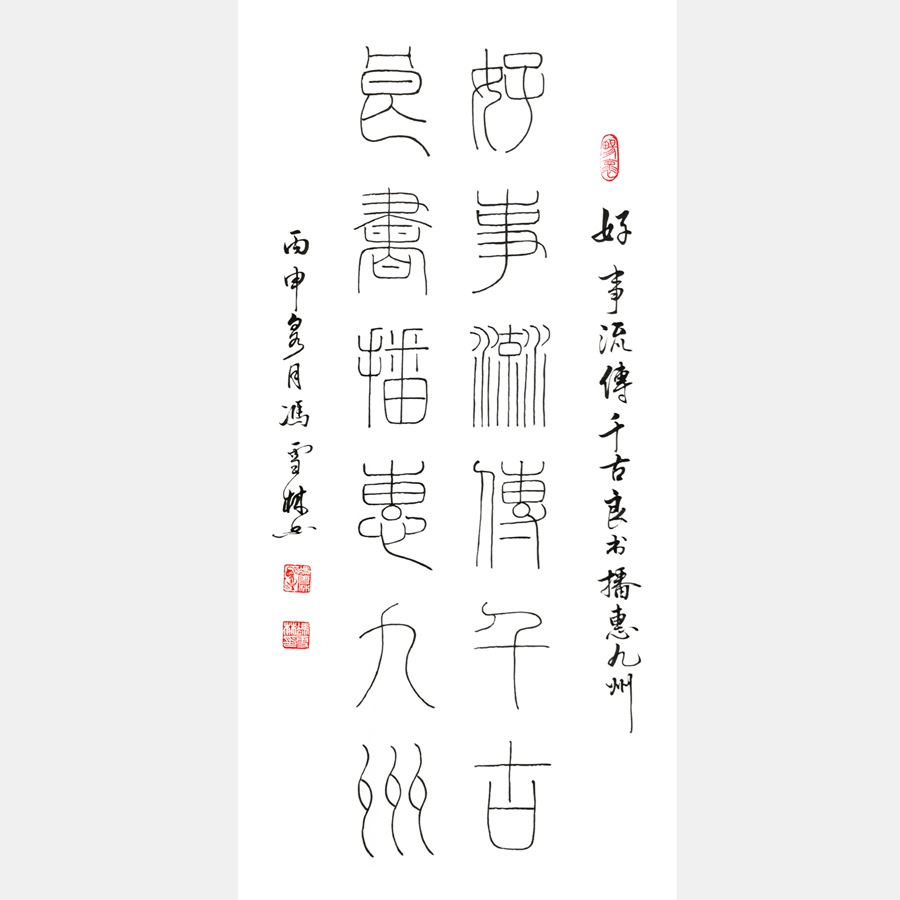 好事流傳千古良书播惠九州
好事流傳千古
良書播惠九州
丙申冬月馮雪林书